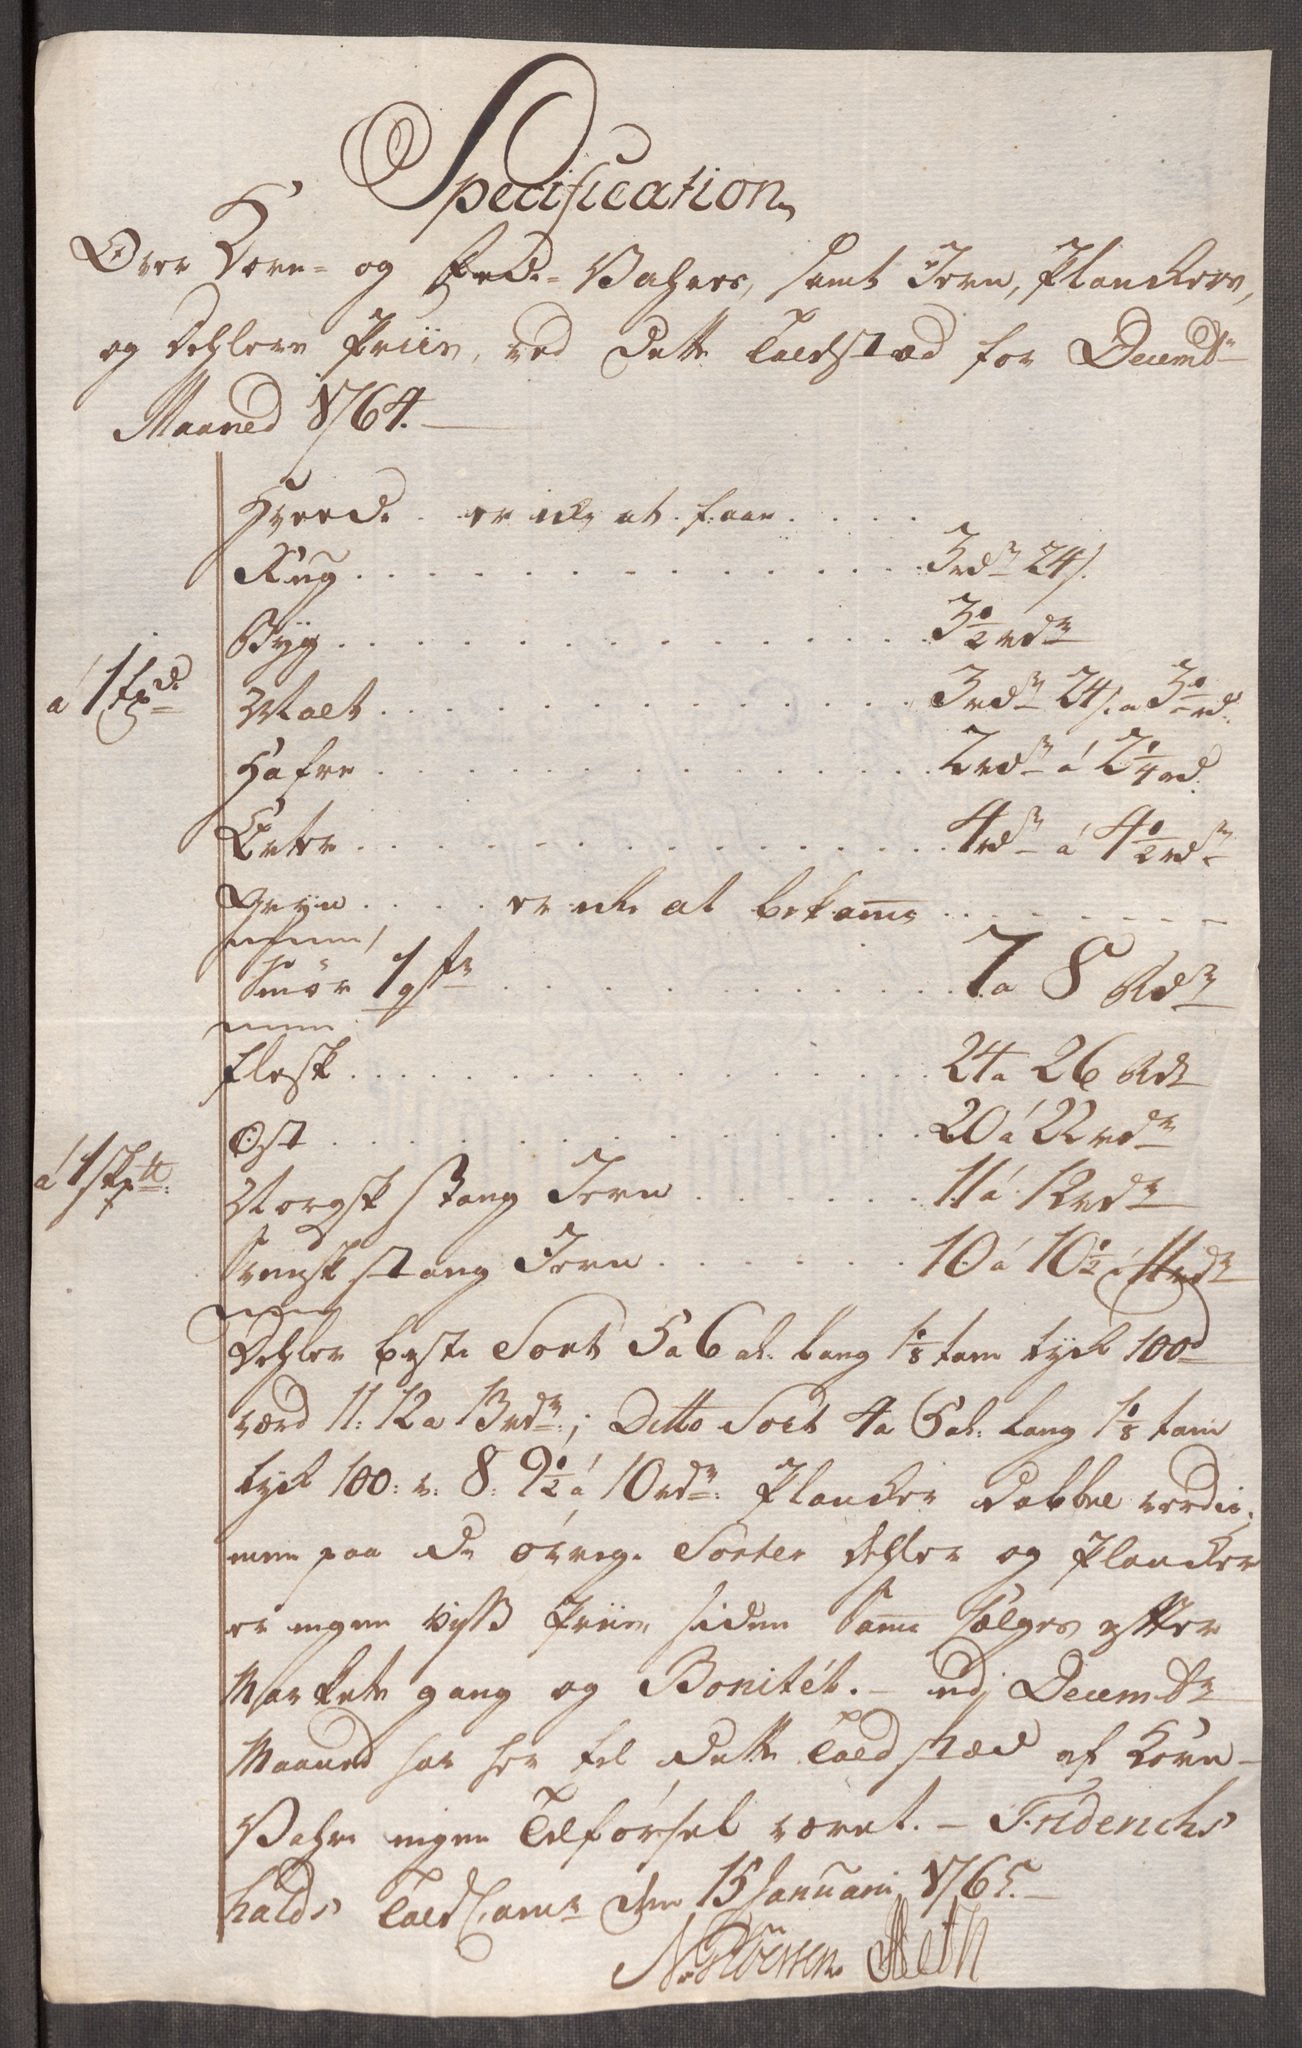 Specification
Over Korn- og Fede-Vahrers, samt Jern, Planckers,
og Dehlers Priis, ved dette Toldstæd for Decembr
Maaned 1764.
Hvede . er icke at faae . . . .
Rug . . . . 3rdr 24s.
Byg . . . . 3½rdr
á 1 tønde
Malt . . . . 3rdr 24s. a 3½rd.
Hafre . . . . 2rdr á 2¼rd.
Erter . . . . 4rdr á 4½rdr
Gryn . . . . er icke at bekomme . . . .
Smör 1 . . . . 7 a 8 Rdr
Flesk . . . . 24 a 26 Rdr
Ost . . . . 20 á 22rdr
á 1 skp℔:
Norgsk stang Jern . . . . 11 á 12rdr
Svensk stang Jern . . . . 10 á 10½ á 11rdr
Dehler beste Sort 5 a 6 al. lang 1⅛ tom tyck 100d
værd 11: 12 a 13rdr: ; Ditto Sort 4 a 5 al: lang 1⅛ tom
tyck 100: v: 8: 9½ á 10rdr: Plancker dobbel verdie,
men paa de øvrige Sorter Dehler og Plancker
er ingen viss Priis, siden Samme sælges efter
Markets gang og Bonitét. – udj Decembr
Maaned har her til dette Toldstæd af Korn-
Vahre ingen Tilførsel været. – Friderichs
halds Told Camr den 15 Januarii 1765. –